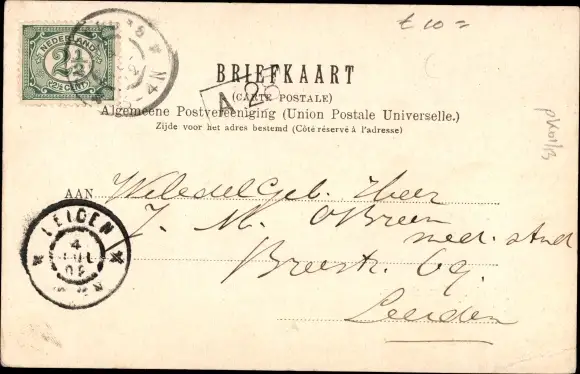 f 10 =
NEDERLAND
2½
CENT
BRIEFKAART
(CARTE POSTALE)
A 23
Algemeene Postvereeniging (Union Postale Universelle.)
Zijde voor het adres bestemd (Côté réservé à l'adresse)
AAN WelEdelGeb. Heer
J. M. OBreen
med. stud
Breestr. 69.
Leiden
LEIDEN
4
JUL
02